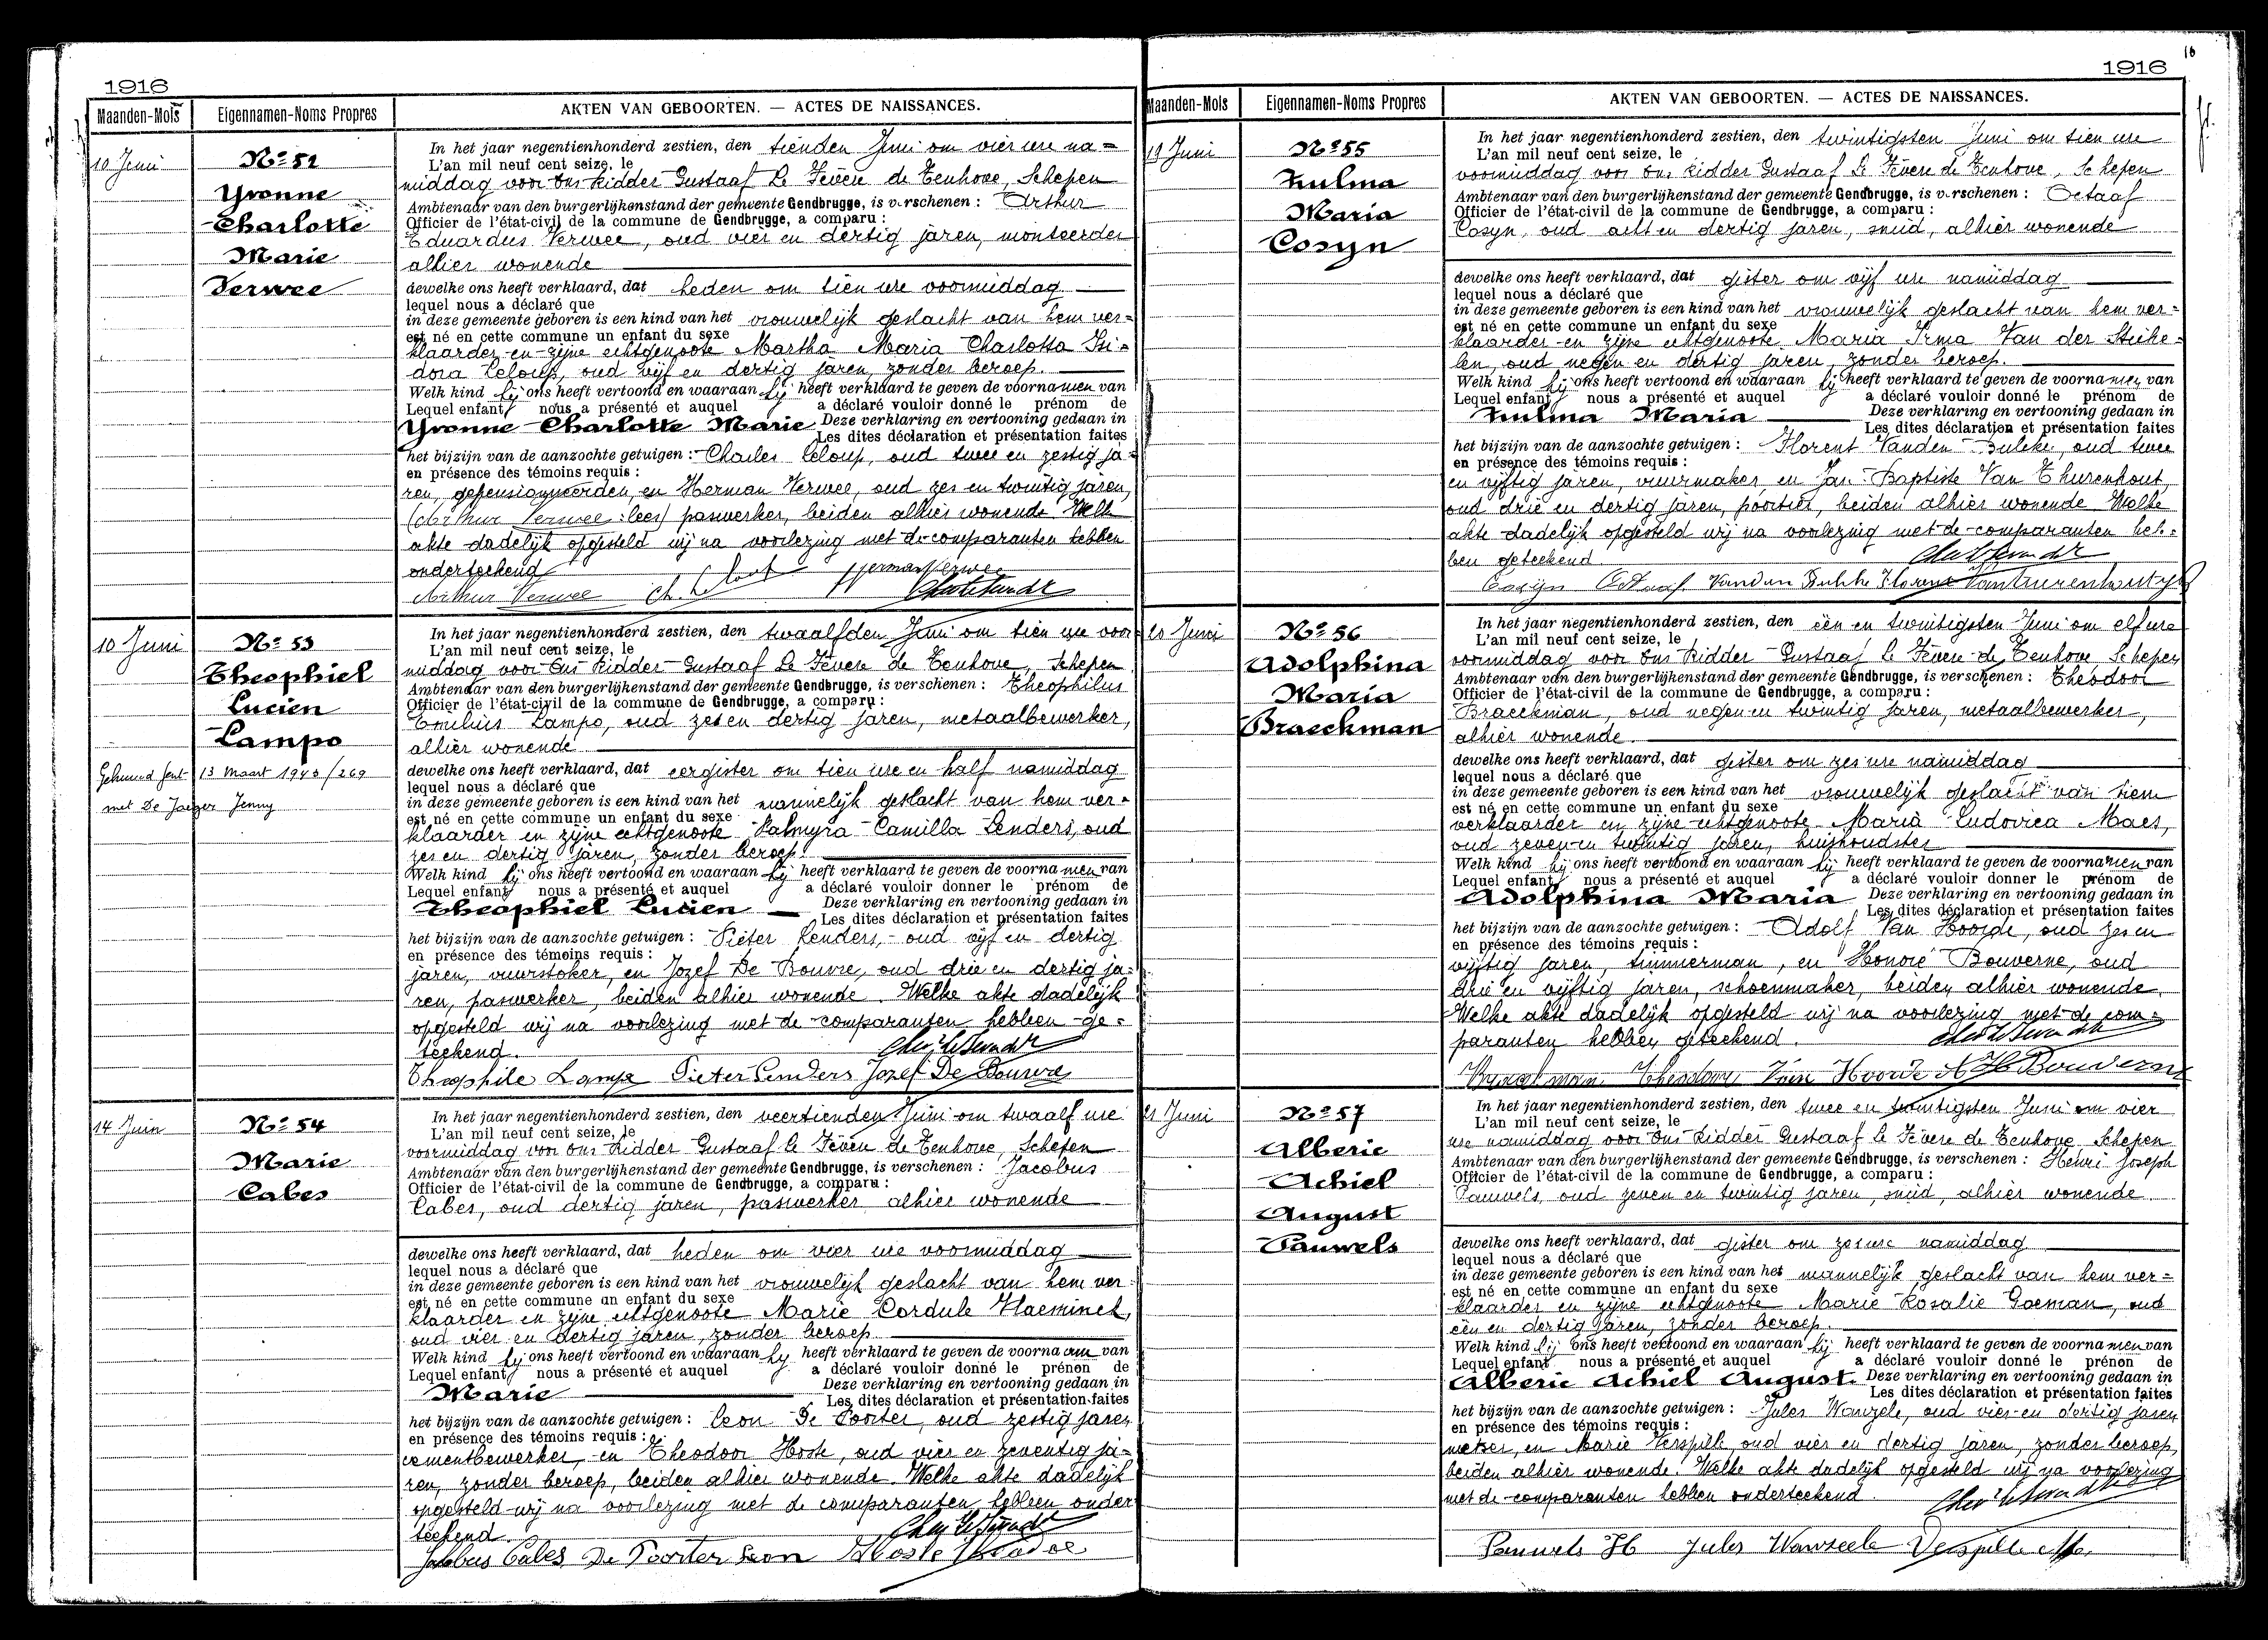 1916
Maanden-Mois
Eigennamen-Noms Propres
AKTEN VAN GEBOORTEN. — ACTES DE NAISSANCES.
10 Juni
No 52
Yvonne
Charlotte
Marie
Verwee
In het jaar negentienhonderd zestien, den tienden Juni om vier ure na=
L'an mil neuf cent seize, le
middag voor Ons Ridder Gustaaf Le Fèvere de Tenhove, Schepen
Ambtenaar van den burgerlijkenstand der gemeente Gendbrugge, is verschenen : Arthur
Officier de l'état-civil de la commune de Gendbrugge, a comparu :
Eduardus Verwee, oud vier en dertig jaren, monteerder
alhier wonende
dewelke ons heeft verklaard, dat heden om tien ure voormiddag
lequel nous a déclaré que
in deze gemeente geboren is een kind van het vrouwelijk geslacht van hem ver=
est né en cette commune un enfant du sexe
klaarder en zijne echtgenoote Martha Maria Charlotta Isi=
dora Leloup, oud vijf en dertig jaren, zonder beroep.
Welk kind hij ons heeft vertoond en waaraan hij heeft verklaard te geven de voornamen van
Lequel enfant nous a présenté et auquel a déclaré vouloir donné le prénom de
Yvonne Charlotte Marie Deze verklaring en vertooning gedaan in
Les dites déclaration et présentation faites
het bijzijn van de aanzochte getuigen : Charles Leloup, oud twee en zestig ja=
en présence des témoins requis :
ren, gepensionneerden, en Herman Verwee, oud zes en twintig jaren,
(Arthur Verwee : lees) paswerker, beiden alhier wonende Welk
akte dadelijk opgesteld wij na voorlezing met de comparanten hebben
onderteekend
Arthur Verwee Ch. Leloup Herman Verwee
10 Juni
No 53
Theophiel
Lucien
Lampo
Gehuwd Gent 13 Maart 1943/269
met De Jaeger Jenny
In het jaar negentienhonderd zestien, den twaalfden Juni om tien ure voor
L'an mil neuf cent seize, le
middag voor Ons Ridder Gustaaf Le Fèvere de Tenhove, Schepen
Ambtenaar van den burgerlijkenstand der gemeente Gendbrugge, is verschenen : Theophilus
Officier de l'état-civil de la commune de Gendbrugge, a comparu :
Emilius Lampo, oud zes en dertig jaren, metaalbewerker,
alhier wonende
dewelke ons heeft verklaard, dat eergister om tien ure en half namiddag
lequel nous a déclaré que
in deze gemeente geboren is een kind van het mannelijk geslacht van hem ver=
est né en cette commune un enfant du sexe
klaarder en zijne echtgenoote Palmyra Camilla Lenders, oud
zes en dertig jaren, zonder beroep.
Welk kind hij ons heeft vertoond en waaraan hij heeft verklaard te geven de voornamen van
Lequel enfant nous a présenté et auquel a déclaré vouloir donner le prénom de
Theophiel Lucien Deze verklaring en vertooning gedaan in
Les dites déclaration et présentation faites
het bijzijn van de aanzochte getuigen : Pieter Lenders, oud vijf en dertig
en présence des témoins requis :
jaren, vuurstoker, en Jozef De Bouvre, oud drie en dertig ja=
ren, paswerker, beiden alhier wonende. Welke akte dadelijk
opgesteld wij na voorlezing met de comparanten hebben ge=
teekend.
Theophile Lampo Pieter Lenders Jozef De Bouvre
14 Juin
No 54
Marie
Cabes
In het jaar negentienhonderd zestien, den veertienden Juni om twaalf ure
L'an mil neuf cent seize, le
voormiddag voor Ons Ridder Gustaaf le Fèvere de Tenhove, Schepen
Ambtenaar van den burgerlijkenstand der gemeente Gendbrugge, is verschenen : Jacobus
Officier de l'état-civil de la commune de Gendbrugge, a comparu :
Cabes, oud dertig jaren, paswerker alhier wonende
dewelke ons heeft verklaard, dat heden om vier ure voormiddag
lequel nous a déclaré que
in deze gemeente geboren is een kind van het vrouwelijk geslacht van hem ver=
est né en cette commune un enfant du sexe
klaarder en zijne echtgenoote Marie Cordule Haeminck,
oud vier en dertig jaren, zonder beroep
Welk kind hij ons heeft vertoond en waaraan hij heeft verklaard te geven de voornaam van
Lequel enfant nous a présenté et auquel a déclaré vouloir donné le prénon de
Marie Deze verklaring en vertooning gedaan in
Les dites déclaration et présentation faites
het bijzijn van de aanzochte getuigen : Leon De Poorter, oud zestig jaren
en présence des témoins requis :
cementbewerker, en Theodoor Hoste, oud vier en zeventig ja=
ren, zonder beroep, beiden alhier wonende. Welke akte dadelijk
opgesteld wij na voorlezing met de comparanten hebben onder
teekend.
Jacobus Cabes De Poorter Leon Hoste Theodoor
1916
Maanden-Mois
Eigennamen-Noms Propres
AKTEN VAN GEBOORTEN. — ACTES DE NAISSANCES.
19 Juni
No 55
Zulma
Maria
Cosyn
In het jaar negentienhonderd zestien, den twintigsten Juni om tien ure
L'an mil neuf cent seize, le
voormiddag voor Ons Ridder Gustaaf Le Fèvere de Tenhove, Schepen
Ambtenaar van den burgerlijkenstand der gemeente Gendbrugge, is verschenen : Octaaf
Officier de l'état-civil de la commune de Gendbrugge, a comparu :
Cosyn, oud acht en dertig jaren, smid, alhier wonende
dewelke ons heeft verklaard, dat gister om vijf ure namiddag
lequel nous a déclaré que
in deze gemeente geboren is een kind van het vrouwelijk geslacht van hem ver=
est né en cette commune un enfant du sexe
klaarder en zijne echtgenoote Maria Irma Van der Stiche=
len, oud negen en dertig jaren, zonder beroep.
Welk kind hij ons heeft vertoond en waaraan hij heeft verklaard te geven de voornamen van
Lequel enfant nous a présenté et auquel a déclaré vouloir donné le prénom de
Zulma Maria Deze verklaring en vertooning gedaan in
Les dites déclaration et présentation faites
het bijzijn van de aanzochte getuigen : Florent Vanden Bulcke, oud twee
en présence des témoins requis :
en vijftig jaren, vuurmaker, en Jan-Baptiste Van Thurenhout,
oud drie en dertig jaren, poortier, beiden alhier wonende Welke
akte dadelijk opgesteld wij na voorlezing met de comparanten heb=
ben geteekend
Cosyn Octaaf. Vanden Bulcke Florent
20 Juni
No 56
Adolphina
Maria
Braeckman
In het jaar negentienhonderd zestien, den één en twintigsten Juni om elf ure
L'an mil neuf cent seize, le
voormiddag voor Ons Ridder Gustaaf le Fèvere de Tenhove Schepen
Ambtenaar van den burgerlijkenstand der gemeente Gendbrugge, is verschenen : Theodoor
Officier de l'état-civil de la commune de Gendbrugge, a comparu :
Braeckman, oud negen en twintig jaren, metaalbewerker,
alhier wonende.
dewelke ons heeft verklaard, dat gister om zes ure namiddag
lequel nous a déclaré que
in deze gemeente geboren is een kind van het vrouwelijk geslacht van hem
est né en cette commune un enfant du sexe
verklaarder en zijne echtgenoote Maria Ludovica Maes,
oud zeven en twintig jaren, huishoudster
Welk kind hij ons heeft vertoond en waaraan hij heeft verklaard te geven de voornamen van
Lequel enfant nous a présenté et auquel a déclaré vouloir donner le prénom de
Adolphina Maria Deze verklaring en vertooning gedaan in
Les dites déclaration et présentation faites
het bijzijn van de aanzochte getuigen : Adolf Van Hoorde, oud zes en
en présence des témoins requis :
vijftig jaren, timmerman, en Honoré Bouverne, oud
drie en vijftig jaren, schoenmaker, beiden alhier wonende.
Welke akte dadelijk opgesteld wij na voorlezing met de com=
paranten hebben geteekend.
Braeckman Theodoor Van Hoorde A H Bouverne
21 Juni
No 57
Alberic
Achiel
August
Pauwels
In het jaar negentienhonderd zestien, den twee en twintigsten Juni om vier
L'an mil neuf cent seize, le
ure namiddag voor Ons Ridder Gustaaf le Fèvere de Tenhove Schepen
Ambtenaar van den burgerlijkenstand der gemeente Gendbrugge, is verschenen : Henri Joseph
Officier de l'état-civil de la commune de Gendbrugge, a comparu :
Pauwels, oud zeven en twintig jaren, smid, alhier wonende
dewelke ons heeft verklaard, dat gister om zes ure namiddag
lequel nous a déclaré que
in deze gemeente geboren is een kind van het mannelijk geslacht van hem ver=
est né en cette commune un enfant du sexe
klaarder en zijne echtgenoote Marie Rosalie Goeman, oud
één en dertig jaren, zonder beroep.
Welk kind hij ons heeft vertoond en waaraan hij heeft verklaard te geven de voornamen van
Lequel enfant nous a présenté et auquel a déclaré vouloir donné le prénon de
Alberic Achiel August. Deze verklaring en vertooning gedaan in
Les dites déclaration et présentation faites
het bijzijn van de aanzochte getuigen : Jules Wanzele, oud vier en dertig jaren
en présence des témoins requis :
metser, en Marie Verspille oud vier en dertig jaren, zonder beroep,
beiden alhier wonende. Welke akte dadelijk opgesteld wij na voorlezing
met de comparanten hebben onderteekend.
Pauwels H Jules Wanzeele Verspille M.